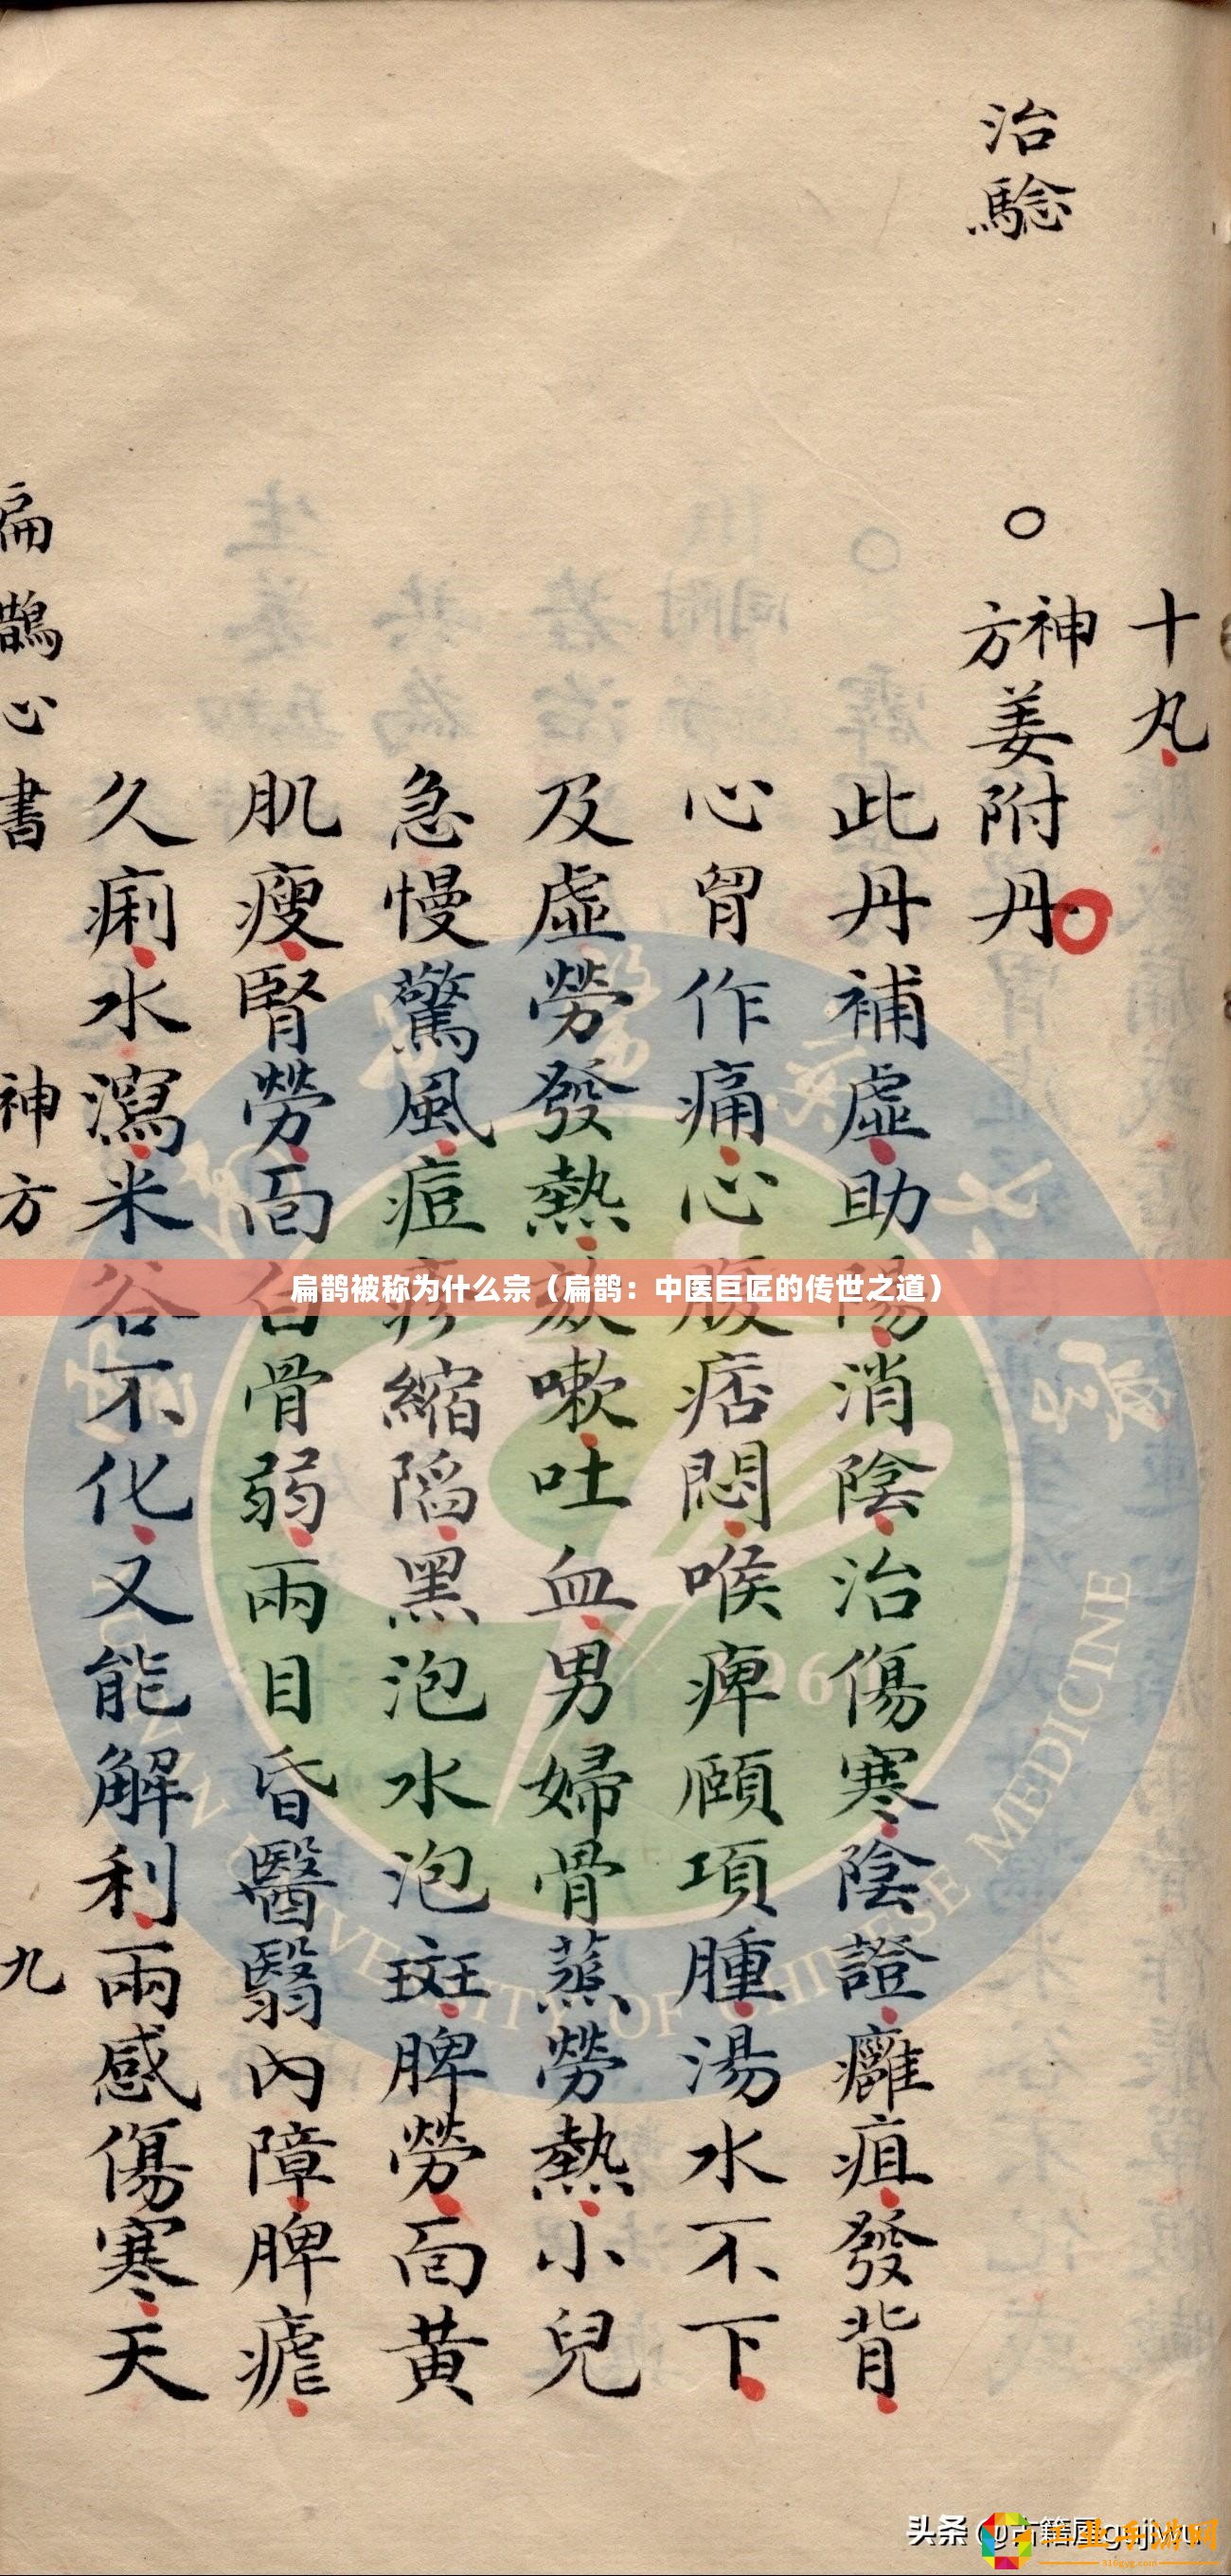 治驗
十丸
○神方姜附丹
此丹補虛助陽消陰治傷寒陰證癰疽發背
心胃作痛心腹痞悶喉痺頤項腫湯水不下
及虛勞發熱欬嗽吐血男婦骨蒸勞熱小兒
急慢驚風痘疹縮陷黑泡水泡斑脾勞面黃
肌瘦腎勞面白骨弱兩目昏翳內障脾瘧
久痢水瀉米谷不化又能解利兩感傷寒天
扁鵲心書 神方 九
扁鹊被称为什么宗（扁鹊：中医巨匠的传世之道）
UNIVERSITY OF CHINESE MEDICINE
头条 @古籍屋gujiwu